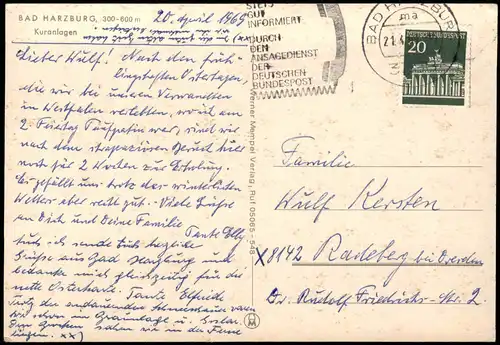 BAD HARZBURG, 300-600 m
Kuranlagen
20. April 1965
Lieber Wulf! Nach den früh-
lingshaften Ostertagen,
die wir bei unseren Verwandten
in Westfalen verlebten, wo ich am
2. Feiertag war, sind wir
nach dem strapaziösen hier
noch für 2 Wochen zur Erholung.
Es gefällt uns trotz der winterlichen
Wetter aber recht gut. Viele Grüße
an Dich und Deine Familie
Tante Elly
Auch ich sende Euch herzliche
Grüße aus Bad Harzburg und
bedanke mich gleichzeitig für die
nette Osterkarte. Tante Elfriede
Trotz der andauernden waren
wir schon in Braunlage u. Goslar.
Den sahen wir in der Ferne
liegen. xx)
STETS
GUT
INFORMIERT
DURCH
DEN
ANSAGEDIENST
DER
DEUTSCHEN
BUNDESPOST
BAD HARZBURG
ma
21.4
DEUTSCHE BUNDESPOST
20
Werner Mempel Verlag, Ruf 05065-545
Familie
Wulf Kersten
X 8142 Radeberg bei Dresden
Dr. Rudolf Friedrichs-Str. 2